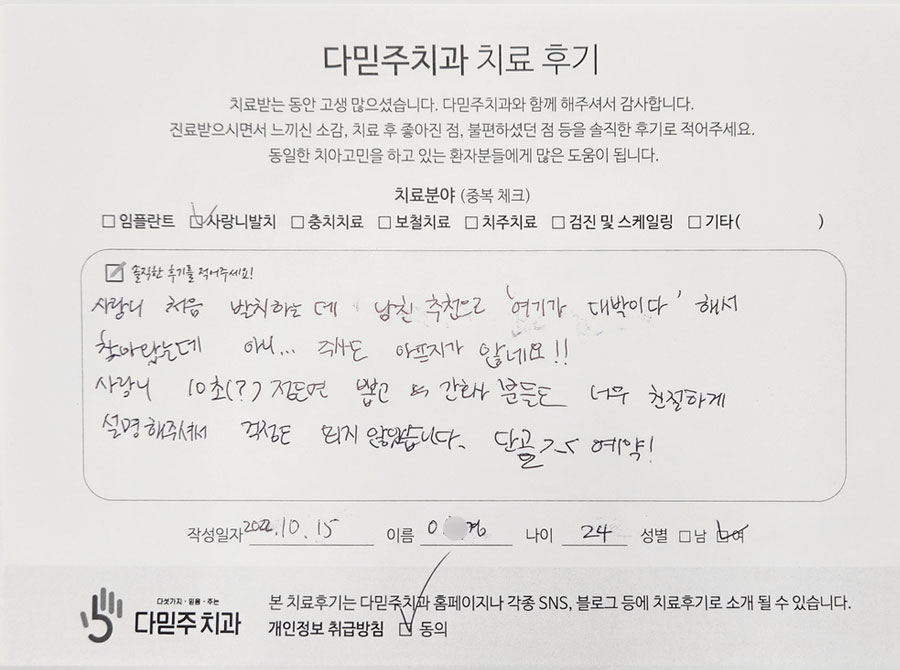 다믿주치과 치료 후기
치료받는 동안 고생 많으셨습니다. 다믿주치과와 함께 해주셔서 감사합니다.
진료받으시면서 느끼신 소감, 치료 후 좋아진 점, 불편하셨던 점 등을 솔직한 후기로 적어주세요.
동일한 치아고민을 하고 있는 환자분들에게 많은 도움이 됩니다.
치료분야 (중복 체크)
□ 임플란트 ☑ 사랑니발치 □ 충치치료 □ 보철치료 □ 치주치료 □ 검진 및 스케일링 □ 기타( )
솔직한 후기를 적어주세요!
사랑니 처음 발치하는 데 남친 추천으로 '여기가 대박이다' 해서
찾아왔는데 아니... 주사도 아프지가 않네요!!
사랑니 10초(??) 정도면 뽑고 간호사 분들도 너무 친절하게
설명해주셔서 걱정도 되지 않았습니다. 단골 예약!
작성일자 2022.10.15 이름 나이 24 성별 □남 ☑여
다섯가지·믿음·주는
다믿주치과
본 치료후기는 다믿주치과 홈페이지나 각종 SNS, 블로그 등에 치료후기로 소개 될 수 있습니다.
개인정보 취급방침 ☑ 동의